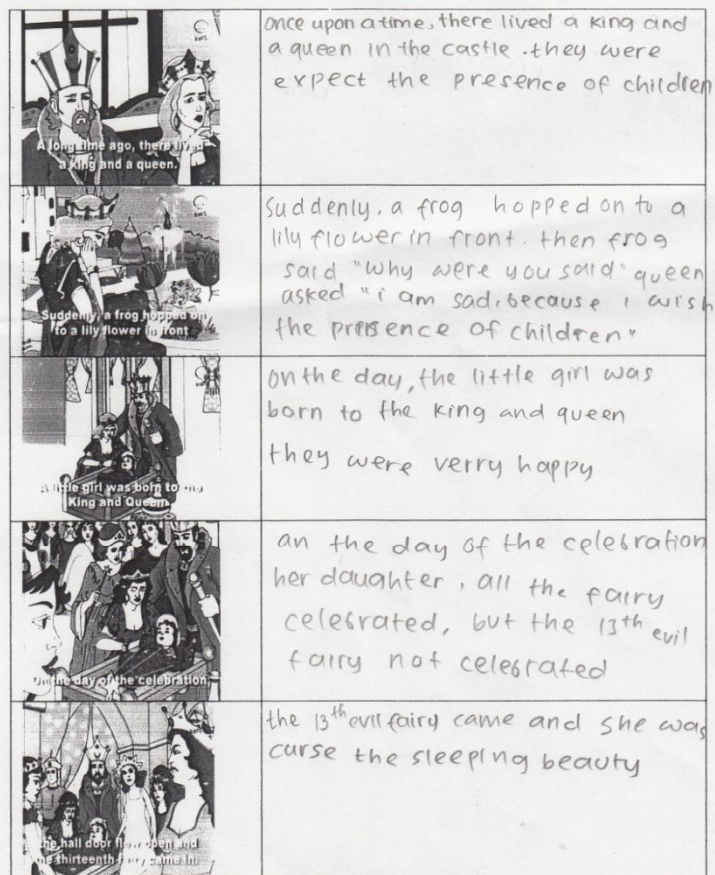 A long time ago, there lived
a king and a queen.
once upon a time, there lived a king and
a queen in the castle . they were
expect the presence of children
Suddenly, a frog hopped on
to a lily flower in front
Suddenly, a frog hopped on to a
lily flower in front. then frog
said "why were you said" queen
asked "i am sad, because i wish
the presence of children"
A little girl was born to the
King and Queen
on the day, the little girl was
born to the king and queen
they were verry happy
On the day of the celebration,
an the day of the celebration
her daughter, all the fairy
celebrated, but the 13th evil
fairy not celebrated
the hall door flew open and
the thirteenth fairy came in.
the 13th evil fairy came and she was
curse the sleeping beauty